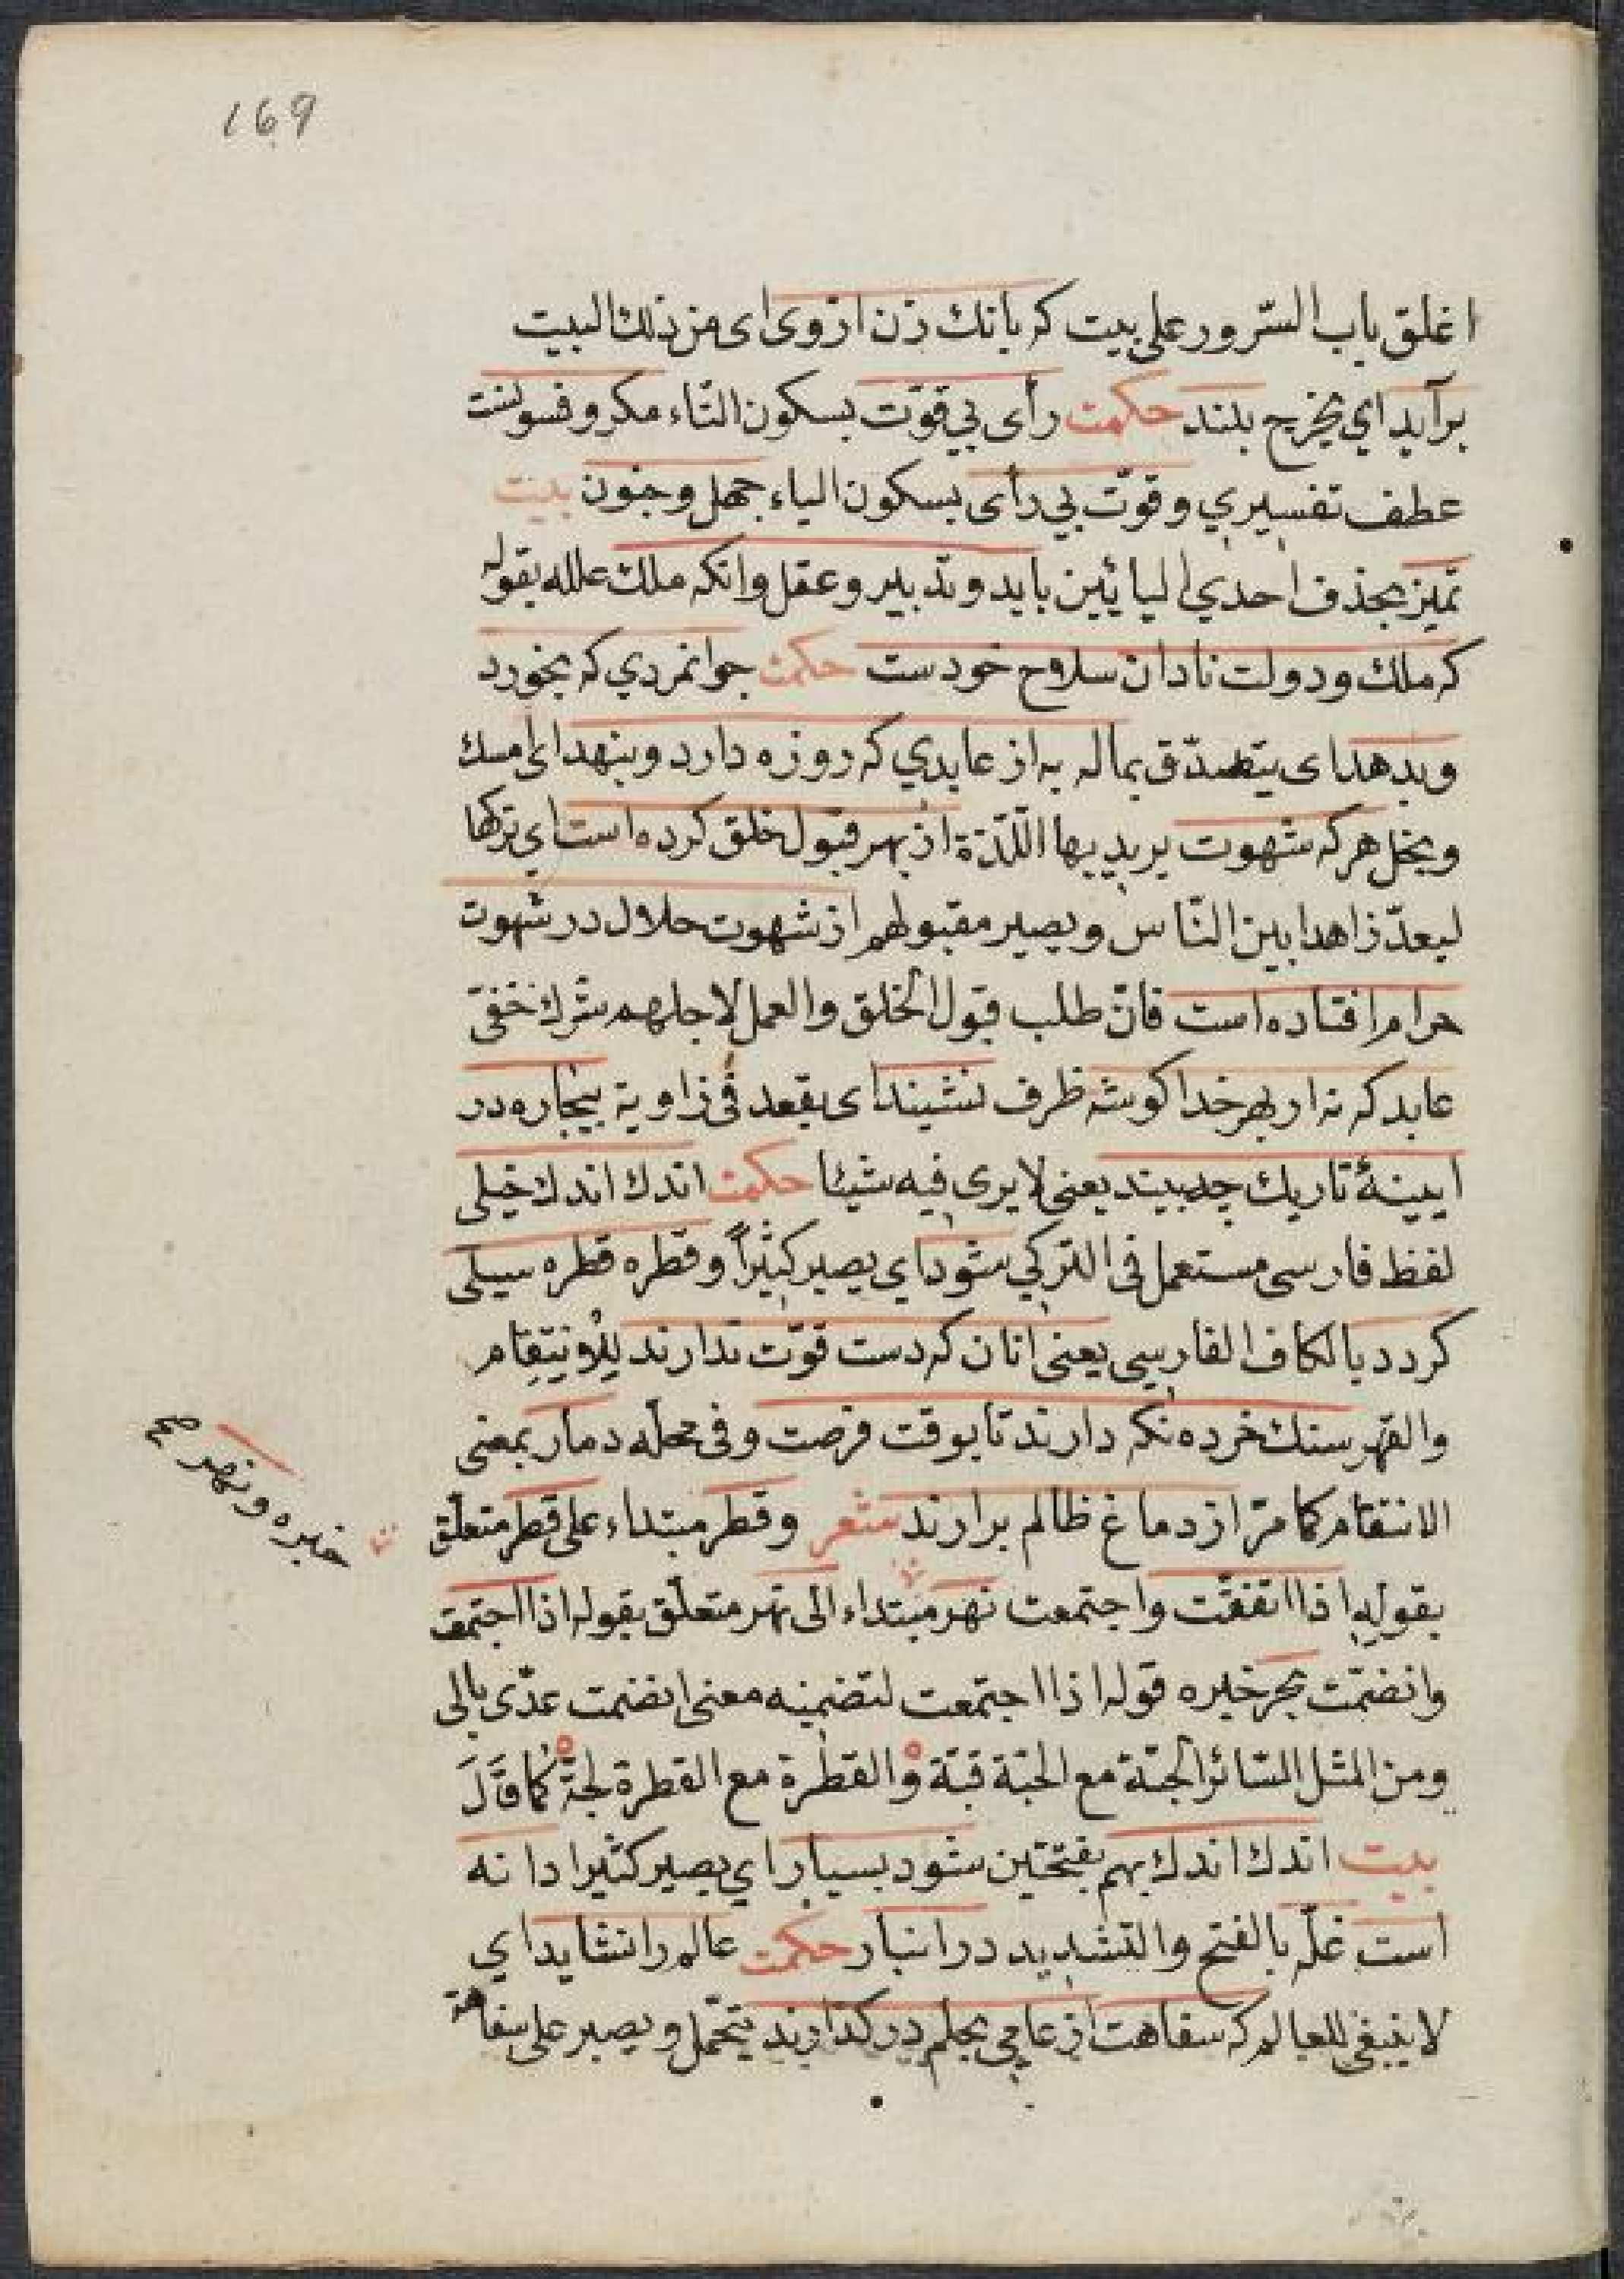 169
اغلق باب السّرور على بيت كه بانك زن ازوى اى من ذلك البيت
برآيد اي يخرج بلند حكمت رأى بي قوّت بسكون التّاء مكر وفسونست
عطف تفسيري وقوّت بي رأى بسكون الياء جهل وجنون بيت
تميز بحذف احدي اليائين بايد وتدبير وعقل وانكه ملك علله بقوله
كه ملك ودولت نادان سلاح خودست حكمت جوانمردي كه بخورد
وبدهد اى يتصدّق بماله به از عابدي كه روزه دارد وبنهد اى امسك
وبخل هركه شهوت يريد بها اللّذة از بهر قبول خلق كرده است اي تركها
ليعدّ زاهدا بين النّاس ويصير مقبولهم از شهوت حلال در شهوت
حرام افتاده است فانّ طلب قبول الخلق والعمل لاجلهم شرك خفى
عابد كه نه از بهر خدا كوشه ظرف نشيند اى يقعد فى زاوية بيچاره در
ايينۀ تاريك چه بيند يعنى لا يرى فيه شيئا حكمت اندك اندك خيلى
لفظ فارسى مستعمل فى التركي شود اي يصير كثيراً وقطره قطره سيلى
كردد بالكاف الفارسي يعنى انان كه دست قوّت ندارند للانتقام
والقهر سنك خرده نكه دارند تا بوقت فرصت وفى محلّه دمار بمعنى
الانتقام كما مرّ از دماغ ظالم برارند شعر وقطر مبتداء على قطر متعلّق
بقوله اذا اتفقت واجتمعت نهر مبتداء الى نهر متعلّق بقوله اذا اجتمعت
وانضمّت بحر خبره قوله اذا اجتمعت لتضمينه معنى انضمت عدّى بالى
ومن المثل السّائر الحبّة مع الحبّة قبّة والقطرة مع القطرة لجّة كما قَالَ
بيت اندك اندك بهم بفتحتين شود بسيار اي يصير كثيرا دانه
است غلّه بالفتح والتشديد در انبار حكمت عالم را نشايد اي
لا ينبغى للعالم كه سفاهت از عامي بحلم در كذارند يتحمّل ويصبر على سفاهة
خبره ونهر صح